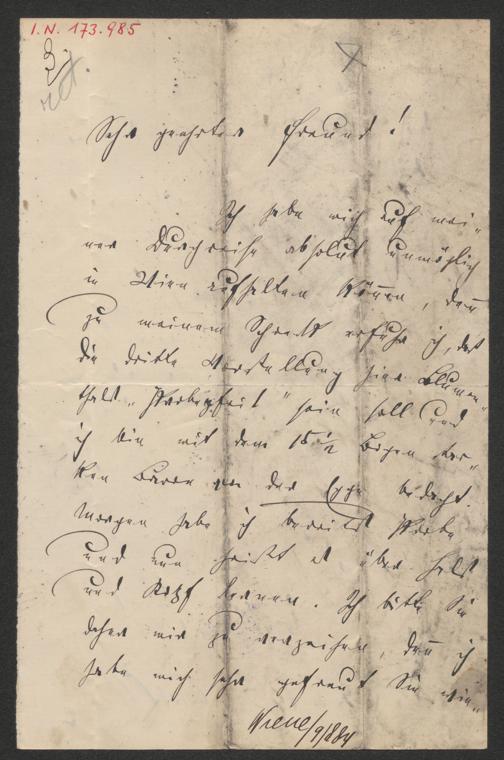 I.N. 173.985
Sehr geehrter Freund!
Ich habe mich auf mei-
ner Durchreise absolut unmöglich
in Wien aufhalten können, denn
zu meinem Schreck erfuhr ich, daß
die dritte Vorstellung hier Blumen-
thals „Probepfeil" sein soll und
ich bin mit dem 15 1/2 Bogen star-
ken Baron von der Egge bedacht.
Morgen habe ich bereits Probe
und nun heißt es über Hals
und Kopf lernen. Ich bitte Sie
daher mir zu verzeihen, denn ich
habe mich sehr gefreut Sie wie-
/9/884